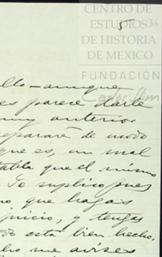 CENTRO DE
ESTUDIOS
DE HISTORIA
DE MEXICO
FUNDACIÓN
5
ello - aunque
parece darte
muy anterior
separará de modo
que es, un mal
table que el mismo
Te suplico pues
no, que hagas
juicio, y tengas
do esta bien hecho,
me avises